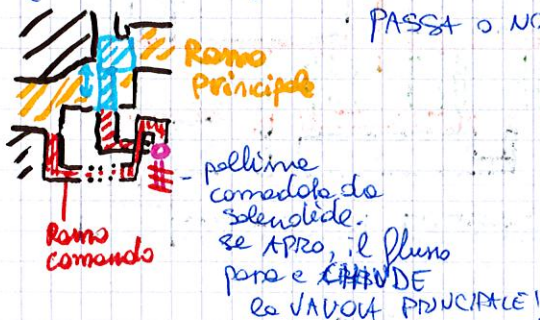 PASSA o NO
Ramo
principale
- pallina
comandata da
solenoide.
se APRO, il flusso
passa e CHIUDE
la VALVOLA PRINCIPALE!
Ramo
comando